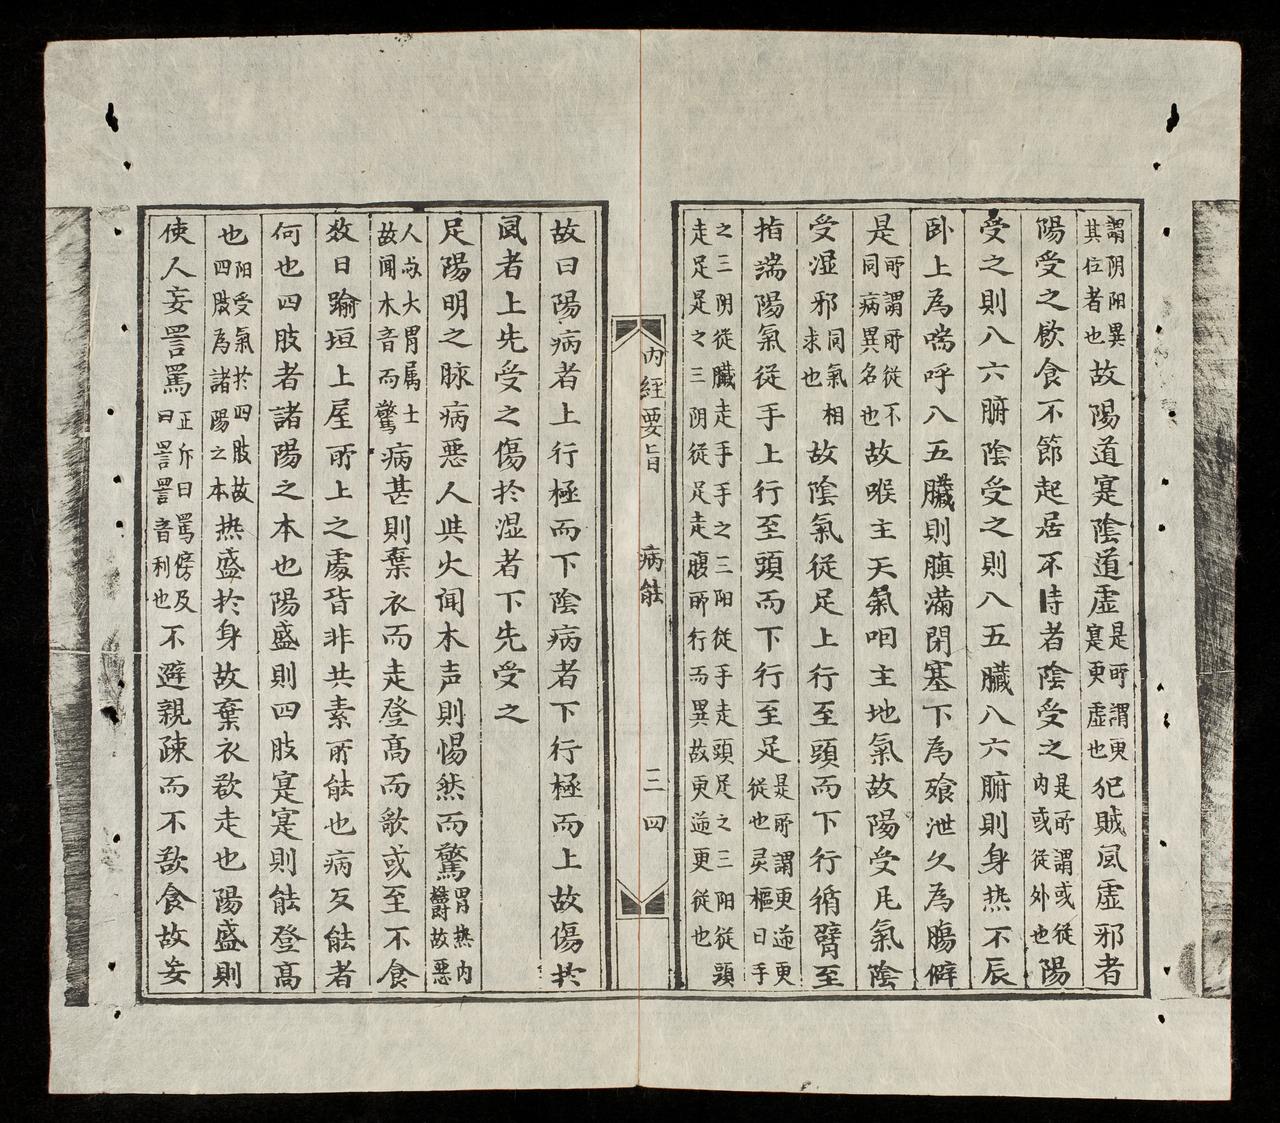 謂阴阳異其位者也故陽道寔陰道虚是所謂更寔更虚也犯賊風虚邪者
陽受之飲食不節起居不時者陰受之是所謂或從内或從外也陽
受之則入六腑陰受之則入五臟入六腑則身热不辰
卧上為喘呼入五臟則䐜滿閉塞下為飱泄久為腸僻
是所謂所從不同病異名也故喉主天氣咽主地氣故陽受凬氣陰
受湿邪同氣相求也故陰氣從足上行至頭而下行循臂至
指端陽氣從手上行至頭而下行至足是所謂更逆更從也灵樞曰手
之三阴從臟走手手之三阳從手走頭足之三阳從頭走足足之三阴從足走腹所行而異故更逆更從也
内經要旨 病能 三四
故曰陽病者上行極而下陰病者下行極而上故傷於
凬者上先受之傷於湿者下先受之
足陽明之脉病惡人與火闻木声則惕然而驚胃热内欝故惡
人与大胃属士故闻木音而驚病甚則棄衣而走登髙而歌或至不食
数日踰垣上屋所上之處皆非其素所能也病反能者
何也四肢者諸陽之本也陽盛則四肢寔寔則能登髙
也阳受氣於四肢故四肢為諸陽之本热盛於身故棄衣欲走也陽盛則
使人妄詈罵正斥曰罵傍及曰詈詈音利也不避親疎而不欲食故妄